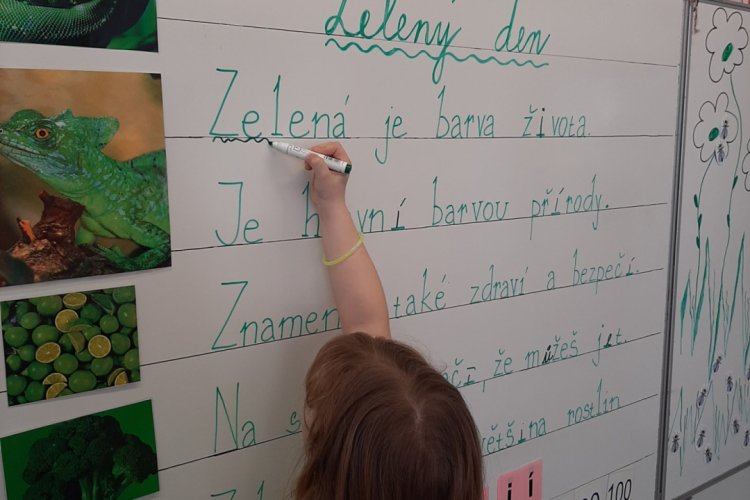 Zelený den
Zelená je barva života.
Je barvou přírody.
také zdraví a bezpečí.
že můžeš jet.
Na většina rostlin
í í 100